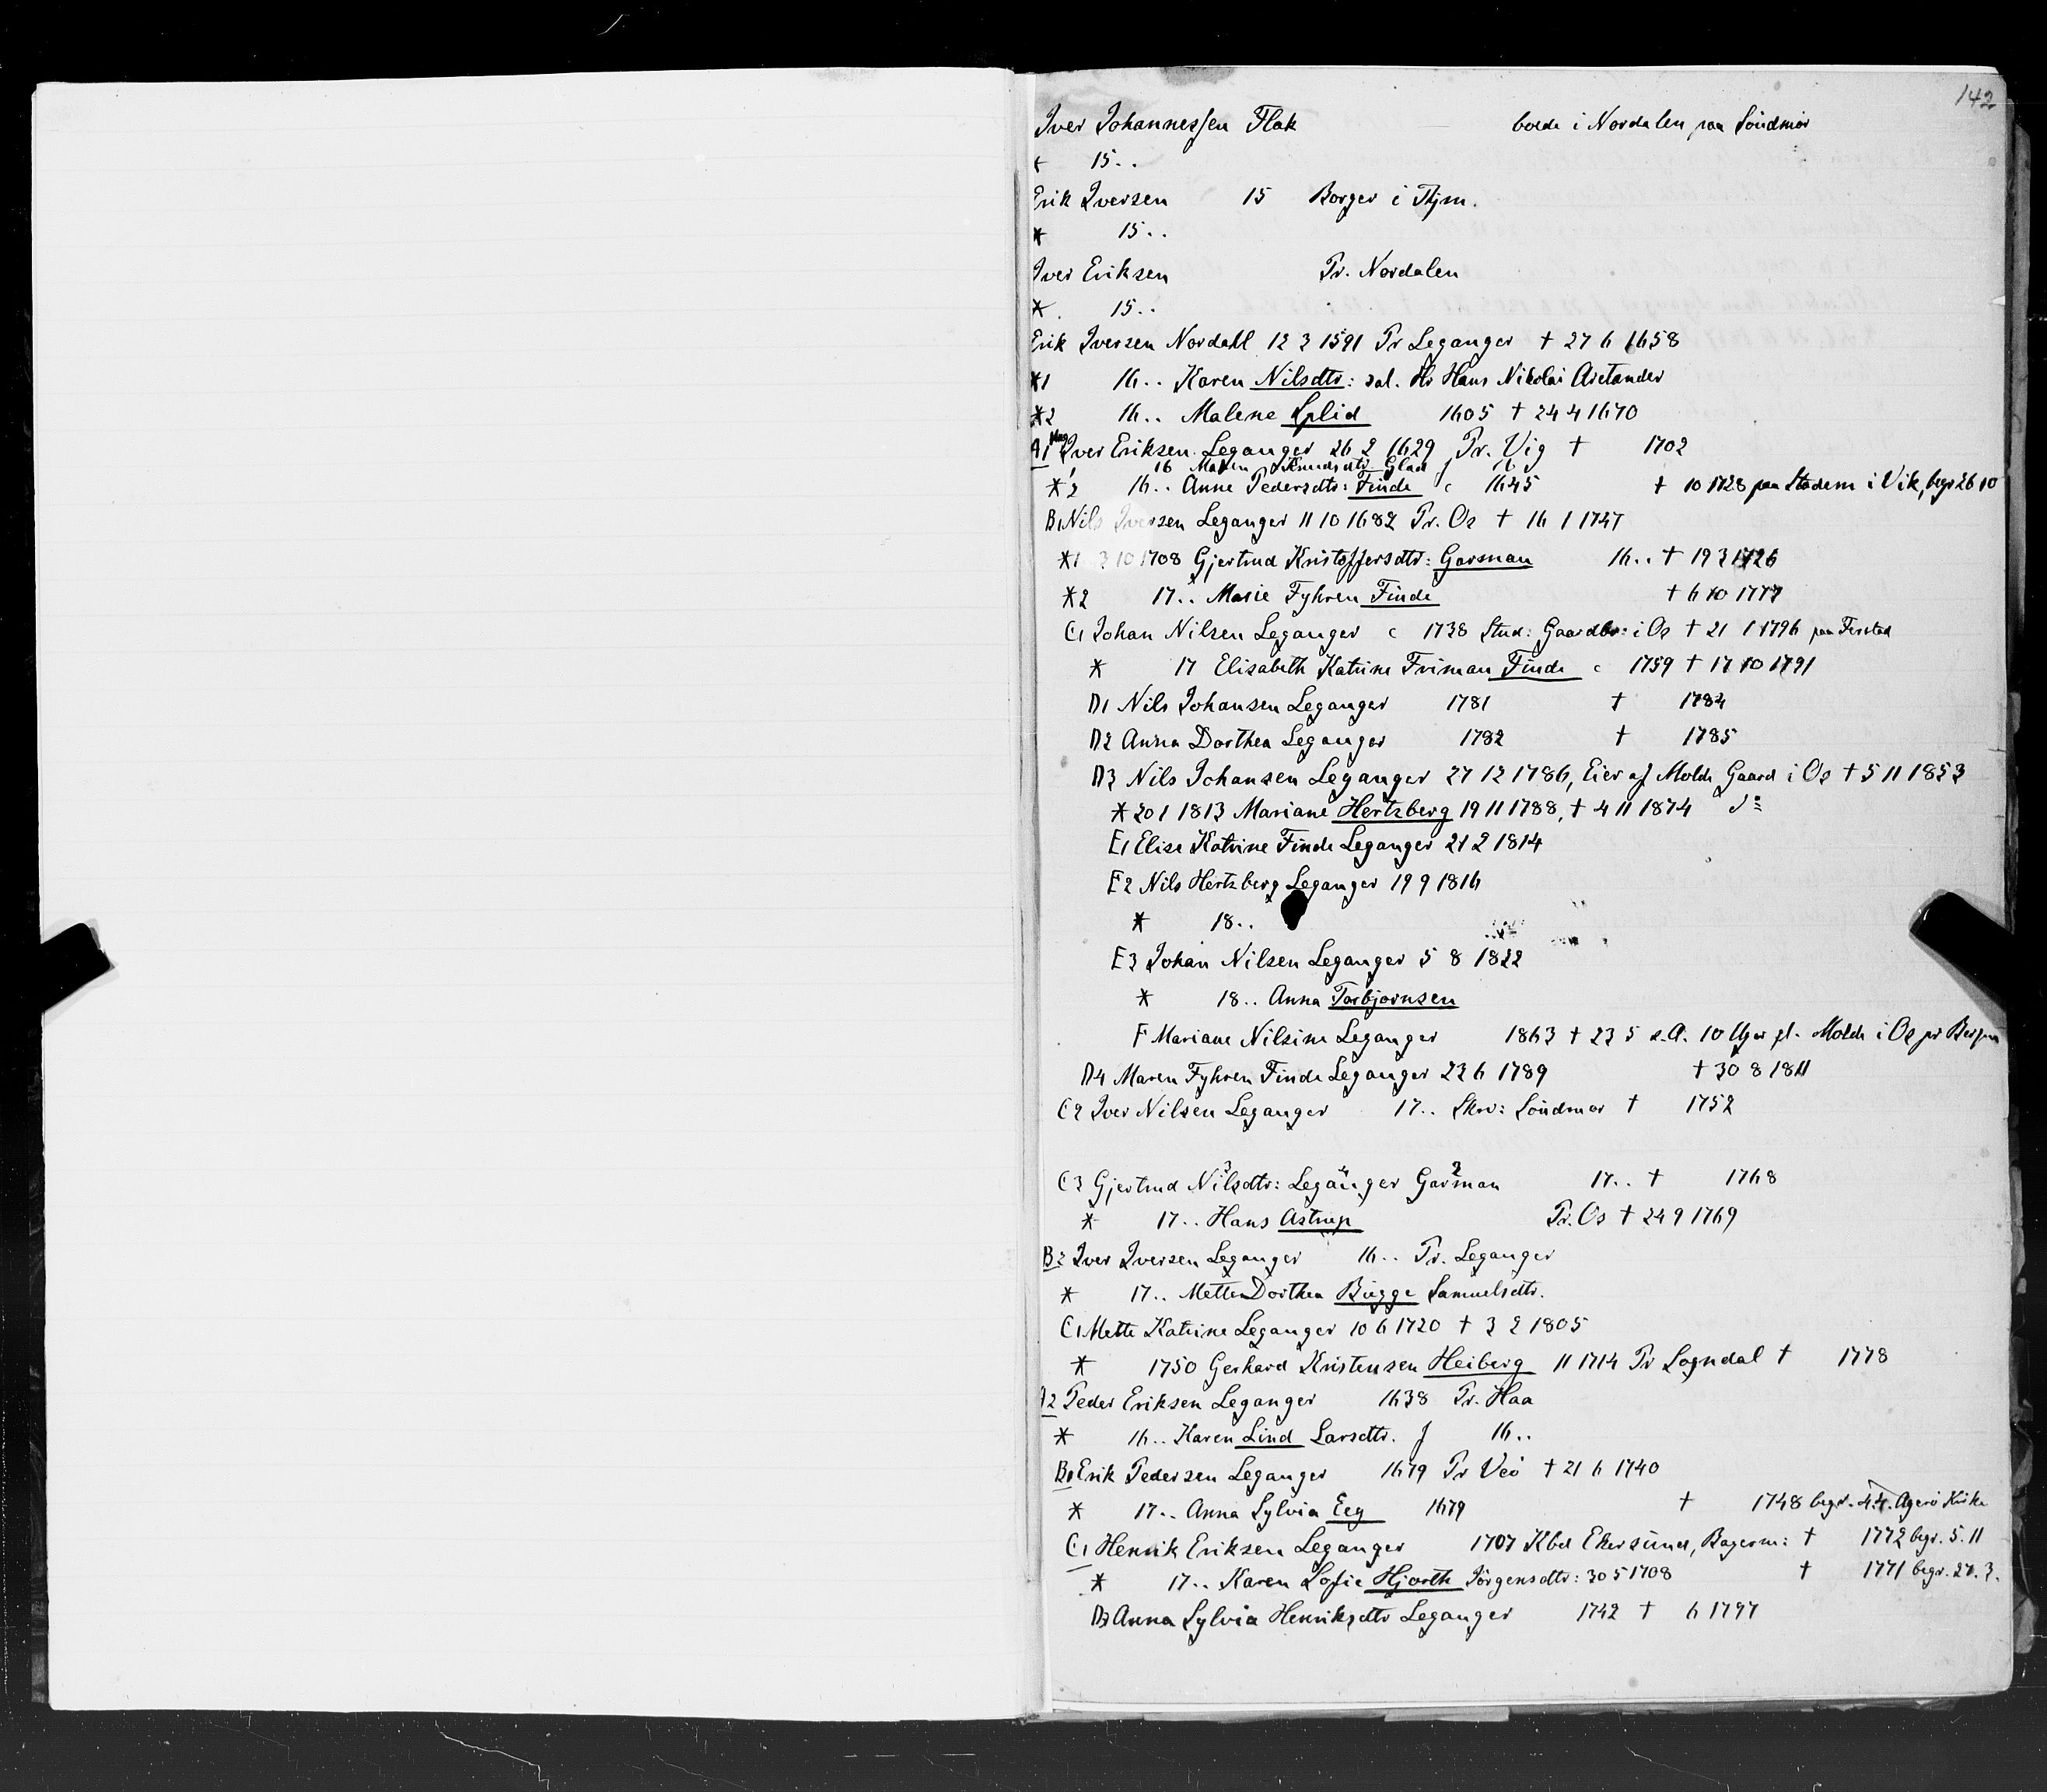 142
Iver Johannessen Flak boede i Nordalen paa Söndmör
* 15..
Erik Iversen 15 Borger i Thjm.
* 15..
Iver Eriksen Pr. Nordalen
* 15..
Erik Iversen Nordahl 12 3 1591 Pr Leganger † 27 6 1658
*1 16.. Karen Nilsdtr: sal. Hr Hans Nikolai Arctander
*2 16.. Malene Splid 1605 † 24 4 1670
A1 Mag Iver Eriksen Leganger 26 2 1629 Pr. Vig † 1702
*1 16 Maren Knudsdtr Glad f 16
*2 16.. Anne Pedersdtr: Finde c 1645 † 10 1728 paa Stadem i Vik, begr 26 10
B1 Nils Iversen Leganger 11 10 1682 Pr. Os † 16 1 1747
*1 3 10 1708 Gjertrud Kristoffersdtr: Garman 16.. † 19 3 1726
*2 17.. Marie Fyhren Finde † 6 10 1777
C1 Johan Nilsen Leganger c 1738 Stud: Gaardbr: i Os † 21 1 1796 paa
* 17 Elisabeth Katrine Friman Finde c 1759 † 17 10 1791
D1 Nils Johansen Leganger 1781 † 1784
D2 Anna Dorthea Leganger 1782 † 1785
D3 Nils Johansen Leganger 27 12 1786, Eier af Molde Gaard i Os † 5 11 1853
* 20 1 1813 Mariane Hertzberg 19 11 1788, † 4 11 1874
E1 Elise Katrine Finde Leganger 21 2 1814
E2 Nils Hertzberg Leganger 19 9 1816
* 18..
E3 Johan Nilsen Leganger 5 8 1822
* 18.. Anna Torbjørnsen
F Mariane Nilsine Leganger 1863 † 23 5 s.A. 10 Uger gl. Molde i Os pr Bergen
D4 Maren Fyhren Finde Leganger 23 6 1789 † 30 8 1811
C2 Iver Nilsen Leganger 17.. Skr: Söndmør † 1752
C3 Gjertrud Nilsdtr: Leganger Garman 17.. † 1768
* 17.. Hans Astrup Pr. Os † 24 9 1769
B2 Iver Iversen Leganger 16.. Pr. Leganger
* 17.. Mette Dorthea Bugge Samuelsdtr.
C1 Mette Katrine Leganger 10 6 1720 † 3 2 1805
* 1750 Gerhard Kristensen Heiberg 11 1714 Pr Sogndal † 1778
A2 Peder Eriksen Leganger 1638 Pr. Haa
* 16.. Karen Lind Larsdtr. f 16..
B1 Erik Pedersen Leganger 1679 Pr Veö † 21 6 1740
* 17.. Anna Sylvia Eeg 1679 † 1748 begr. 4.4. Agerö Kirke
C1 Henrik Eriksen Leganger 1707 Kbd Ekersund, Bagerm: † 1772 begr. 5. 11
* 17.. Karen Sofie Hjorth Jörgensdtr: 30 5 1708 † 1771 begr. 27. 3.
D3 Anna Sylvia Henriksdtr Leganger 1742 † 6 1797